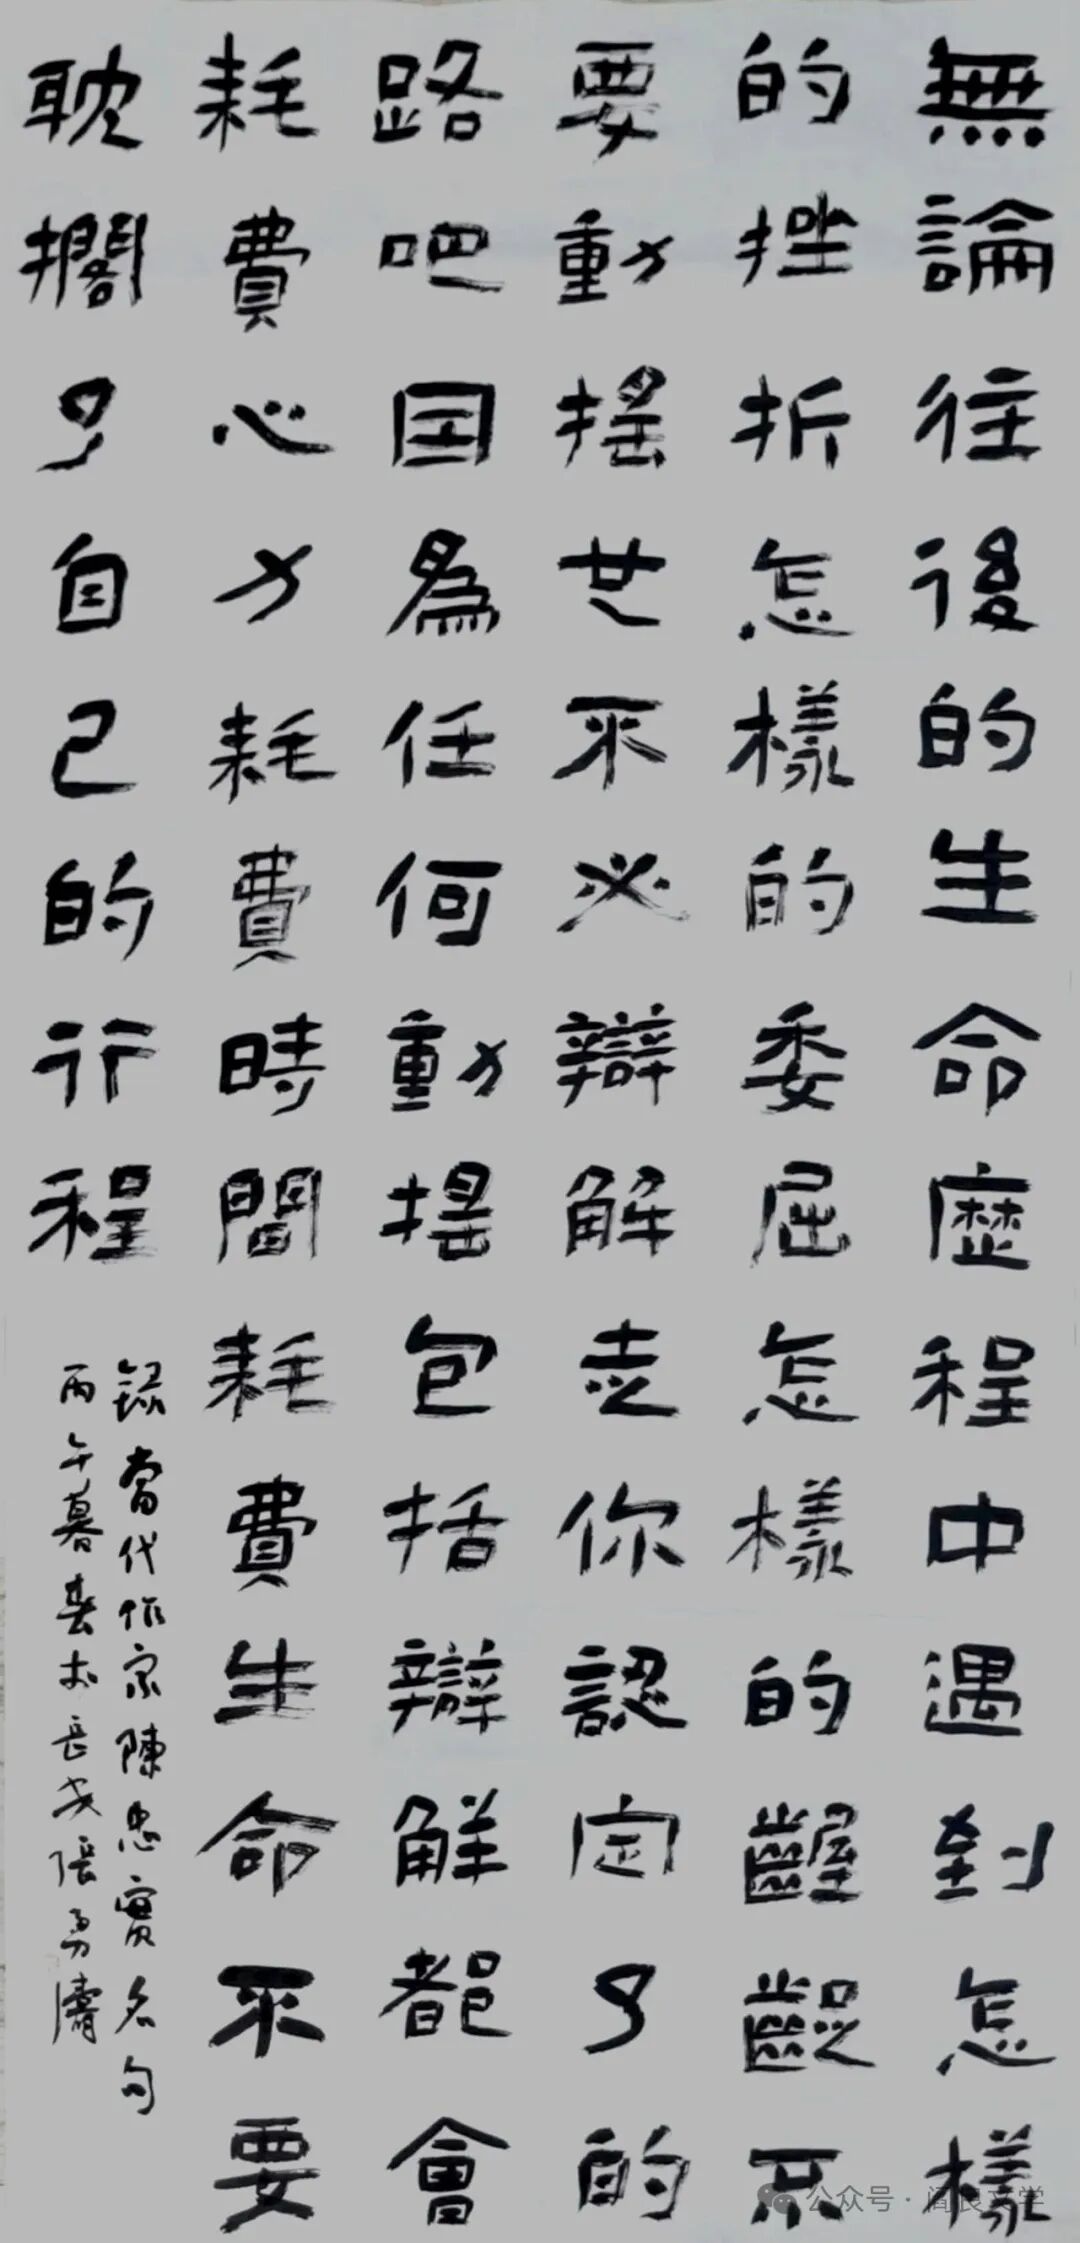 無論往後的生命歷程中遇到怎樣
的挫折怎樣的委屈怎樣的齷齪不
要動摇也不必辯解走你認定了的
路吧因為任何動摇包括辯解都會
耗費心力耗費時間耗費生命不要
耽擱了自己的行程
録當代作家陳忠實名句
丙午暮春於長安張勇濤
公众号 · 阎良文学